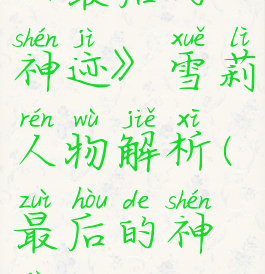 shén jì xuě lì
神迹》 雪莉
rén wù jiě xī
人物解析(
zuì hòu de shén
最后的神